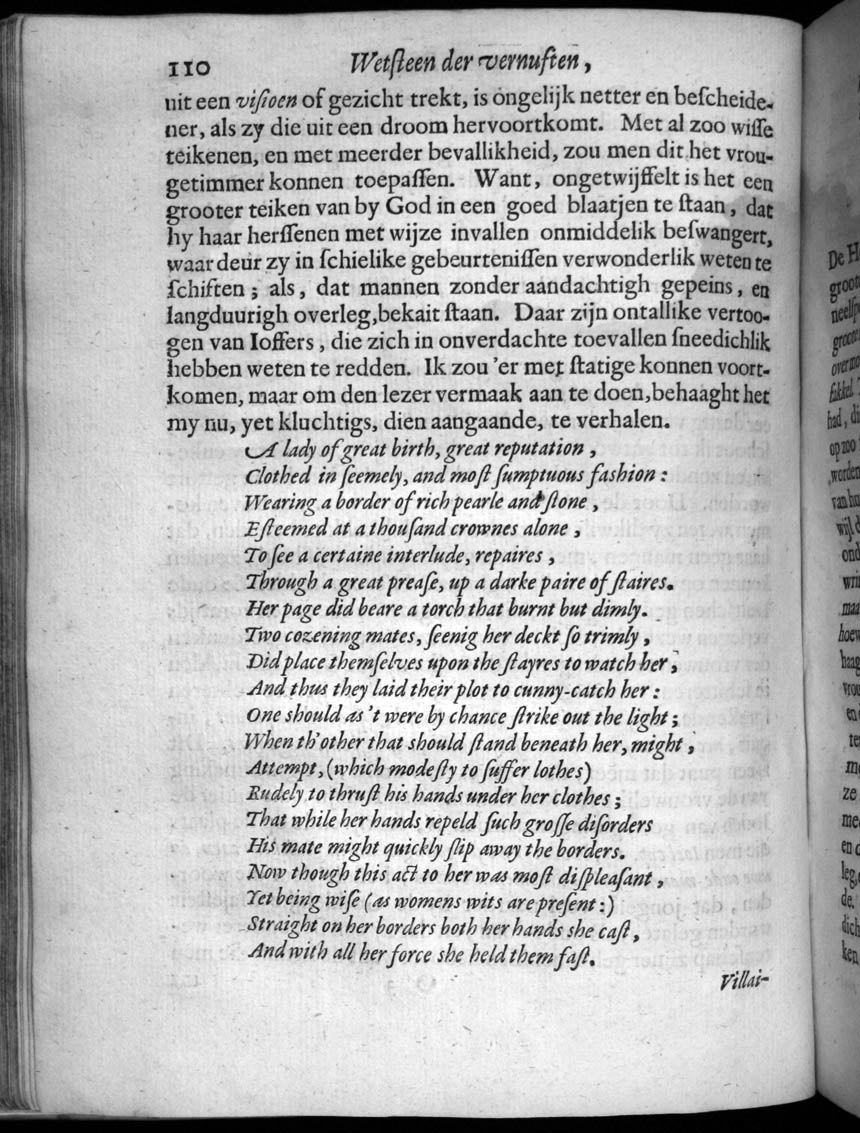 110 Wetſteen der vernuften,
uit een viſioen of gezicht trekt, is ongelijk netter en beſcheide-
ner, als zy die uit een droom hervoortkomt. Met al zoo wiſſe
teikenen, en met meerder bevallikheid, zou men dit het vrou-
getimmer konnen toepaſſen. Want, ongetwijffelt is het een
grooter teiken van by God in een goed blaatjen te ſtaan, dat
hy haar herſſenen met wijze invallen onmiddelik beſwangert,
waar deur zy in ſchielike gebeurteniſſen verwonderlik weten te
ſchiften; als, dat mannen zonder aandachtigh gepeins, en
langduurigh overleg,bekait ſtaan. Daar zijn ontallike vertoo-
gen van Ioffers, die zich in onverdachte toevallen ſneedichlik
hebben weten te redden. Ik zou 'er met ſtatige konnen voort-
komen, maar om den lezer vermaak aan te doen,behaaght het
my nu, yet kluchtigs, dien aangaande, te verhalen.
A lady of great birth, great reputation,
Clothed in ſeemely, and moſt ſumptuous faſhion:
Wearing a border of rich pearle and ſtone,
Eſteemed at a thouſand crownes alone,
To ſee a certaine interlude, repaires,
Through a great preaſe, up a darke paire of ſtaires.
Her page did beare a torch that burnt but dimly.
Two cozening mates, ſeenig her deckt ſo trimly,
Did place themſelves upon the ſtayres to watch her,
And thus they laid their plot to cunny-catch her:
One ſhould as 't were by chance ſtrike out the light;
When th'other that ſhould ſtand beneath her, might,
Attempt, (which modeſty to ſuffer lothes)
Rudely to thruſt his hands under her clothes;
That while her hands repeld ſuch groſſe diſorders
His mate might quickly ſlip away the borders.
Now though this act to her was moſt diſpleaſant,
Yet being wiſe (as womens wits are preſent:)
Straight on her borders both her hands she caſt,
And with all her force she held them faſt.
Villai-
De H
groot
neelſp
groote
overm
fikkel.
had, di
op zoo
worden
van ho
wijl d
ond
wri
maa
hoew
haag
vrou
en
te
me
ze
me
en
leg,
de.
dich
ken